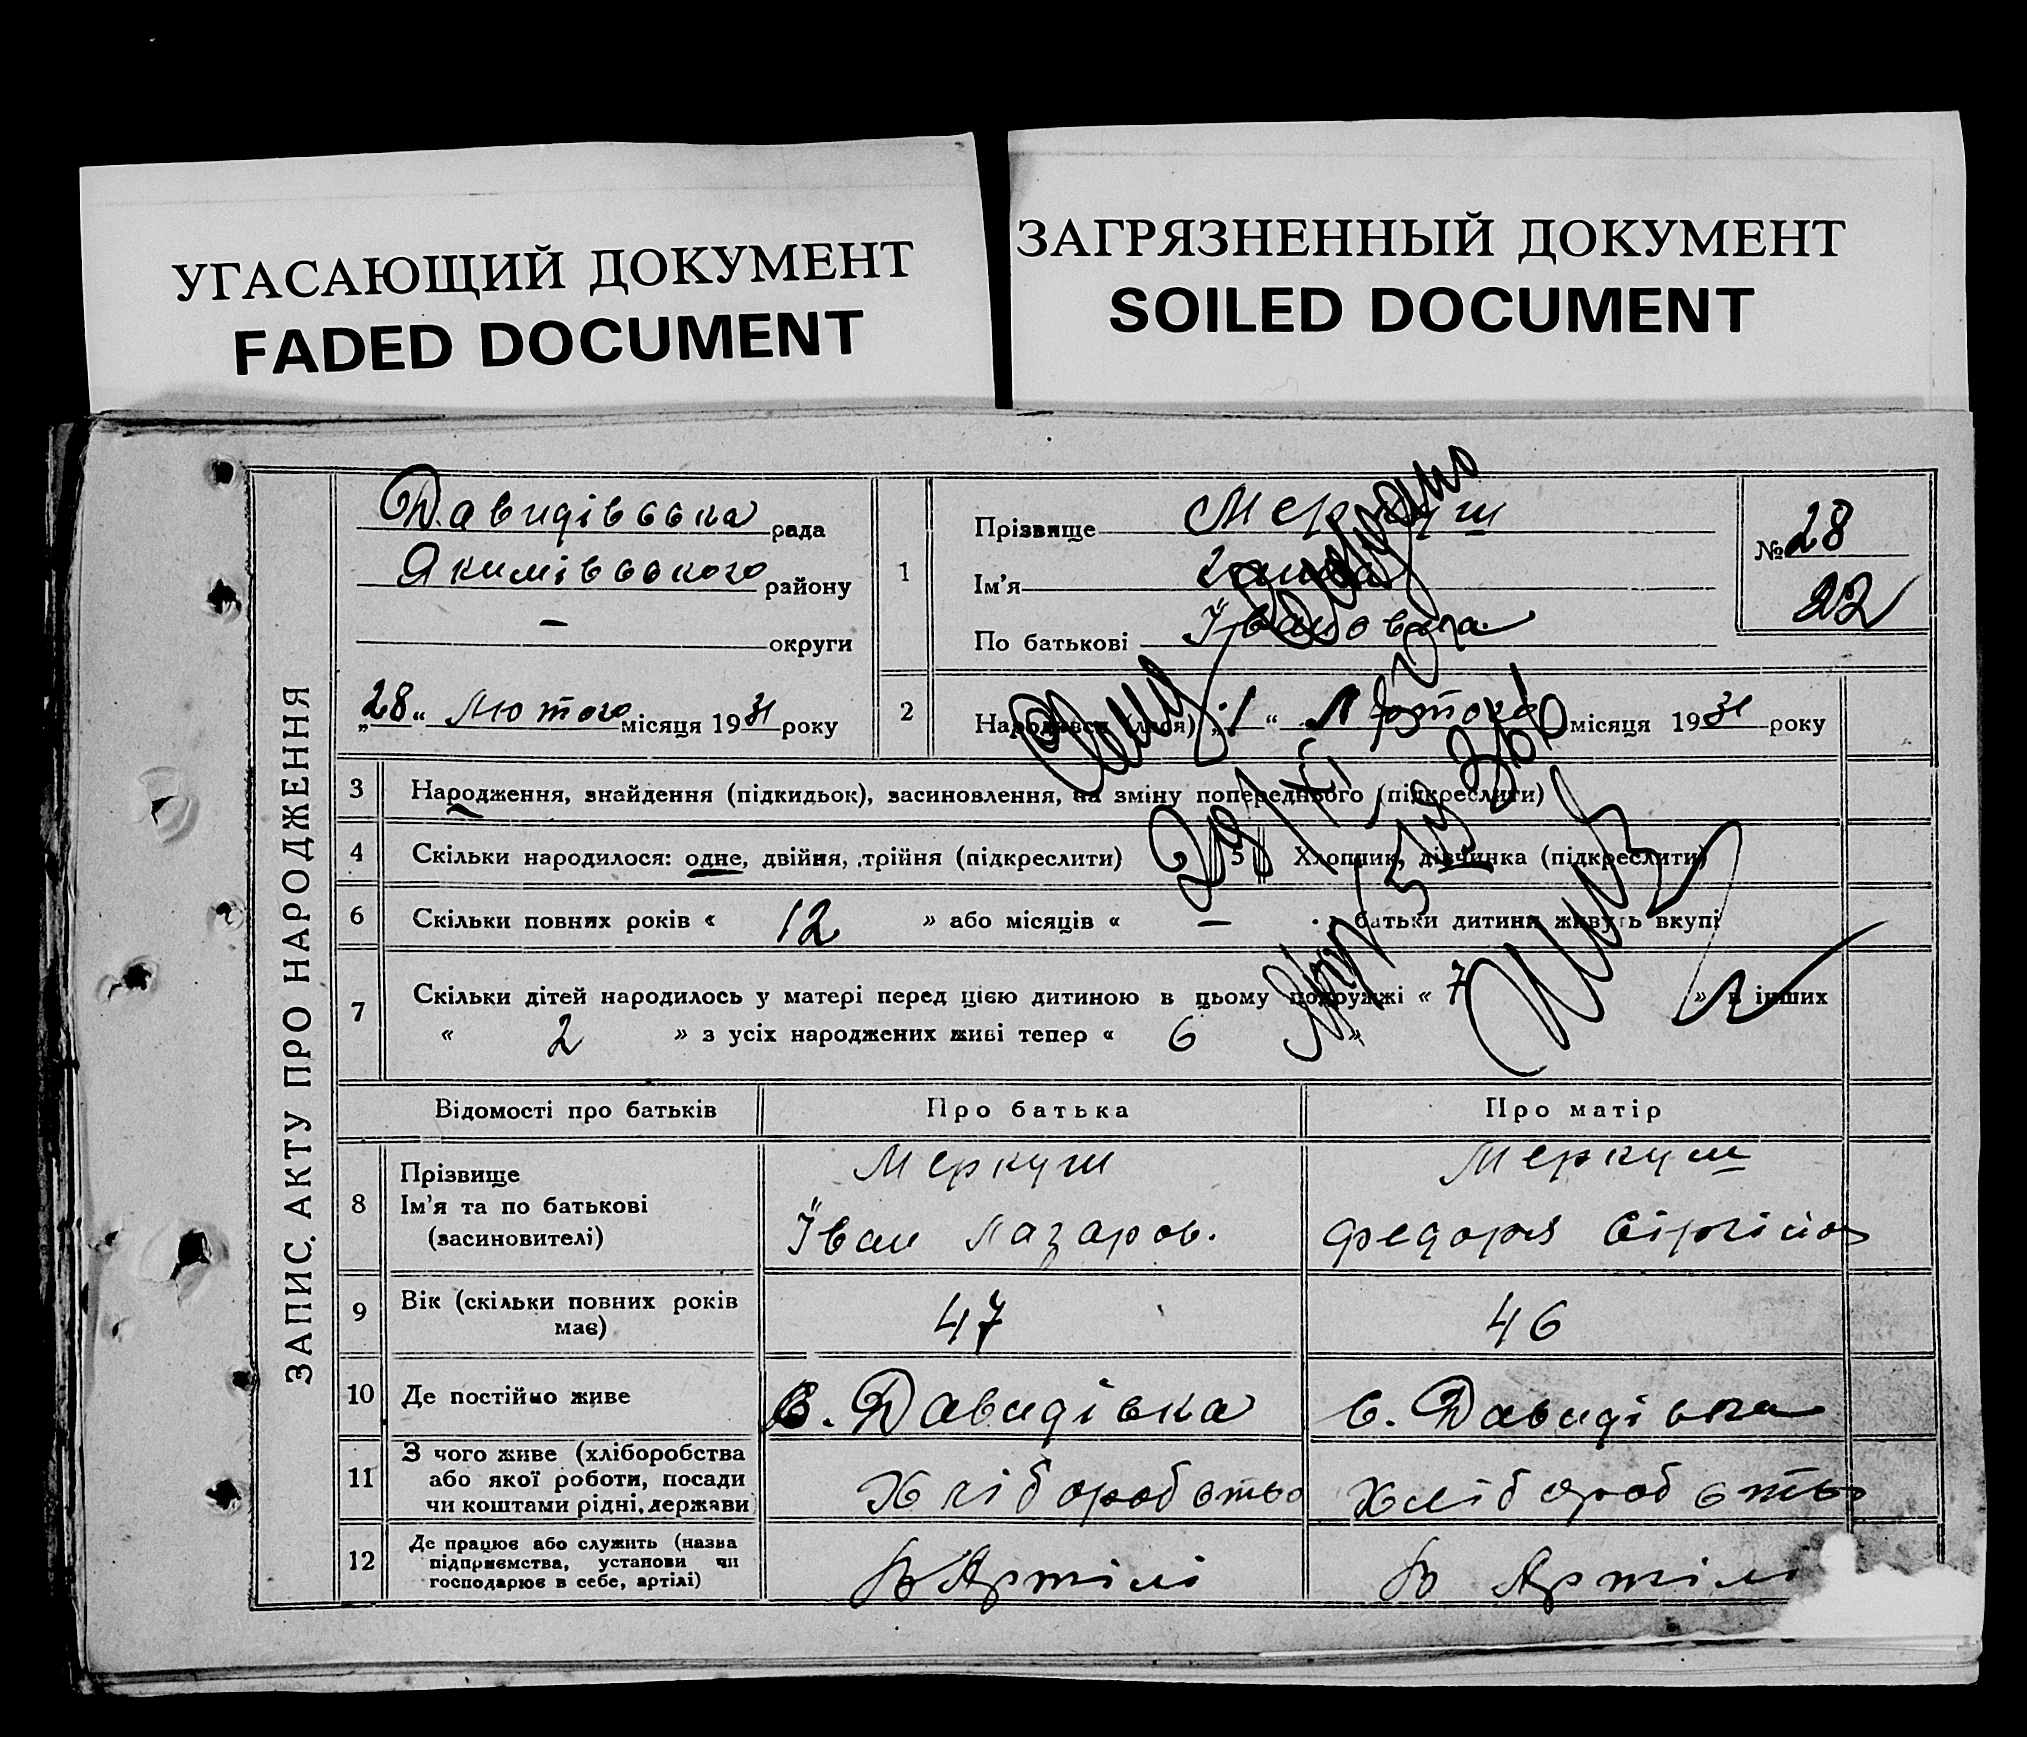 УГАСАЮЩИЙ ДОКУМЕНТ
FADED DOCUMENT
ЗАГРЯЗНЕННЫЙ ДОКУМЕНТ
SOILED DOCUMENT
ЗАПИС АКТУ ПРО НАРОДЖЕННЯ
Давидівська рада
Якимівського району
— округи
„28“ Лютого місяця 1931 року
1
Прізвище Меркуш
Ім'я
По батькові Івановна
№ 28
22
2 Народився (лася) „1“ Лютого місяця 1931 року
3 Народження, знайдення (підкидьок), васиновлення, на зміну попереднього (підкреслити)
4 Скільки народилося: одне, двійня, трійня (підкреслити) 5 Хлопчик, дівчинка (підкреслити)
6 Скільки повних років « 12 » або місяців « — » батьки дитини живуть вкупі
7 Скільки дітей народилось у матері перед цією дитиною в цьому подружжі « 7 » в інших
« 2 » з усіх народжених живі тепер « 6 »
Відомості про батьків Про батька Про матір
8 Прізвище
Ім'я та по батькові
(васиновителі)
Меркуш
Іван Лазаров.
Меркуш
Федора
9 Вік (скільки повних років
має)
47
46
10 Де постійно живе С. Давидівка с. Давидівка
11 З чого живе (хліборобства
або якої роботи, посади
чи коштами рідні, держави
Хліборобство
Хліборобство
12 Де працює або служить (назва
підприємства, установи чи
господарює в себе, артілі)
В Артілі
В Артілі